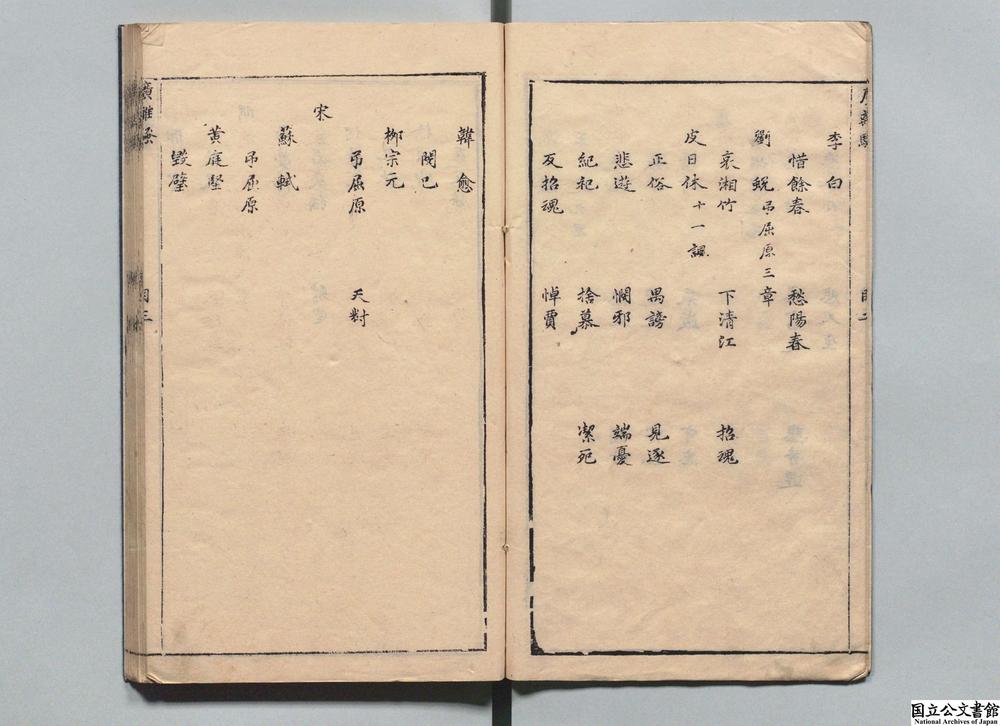 李白
惜餘春 愁陽春
劉蛻 弔屈原三章
哀湘竹 下清江 招魂
皮日休 十一調
正俗 禺謗 見逐
悲遊 憫邪 端憂
紀祀 捨慕 潔死
反招魂 悼賈
目二
韓愈
閔己
柳宗元
弔屈原 天對
宋
蘇軾
弔屈原
黃庭堅
毀璧
廣離騷
目三
国立公文書館
National Archives of Japan